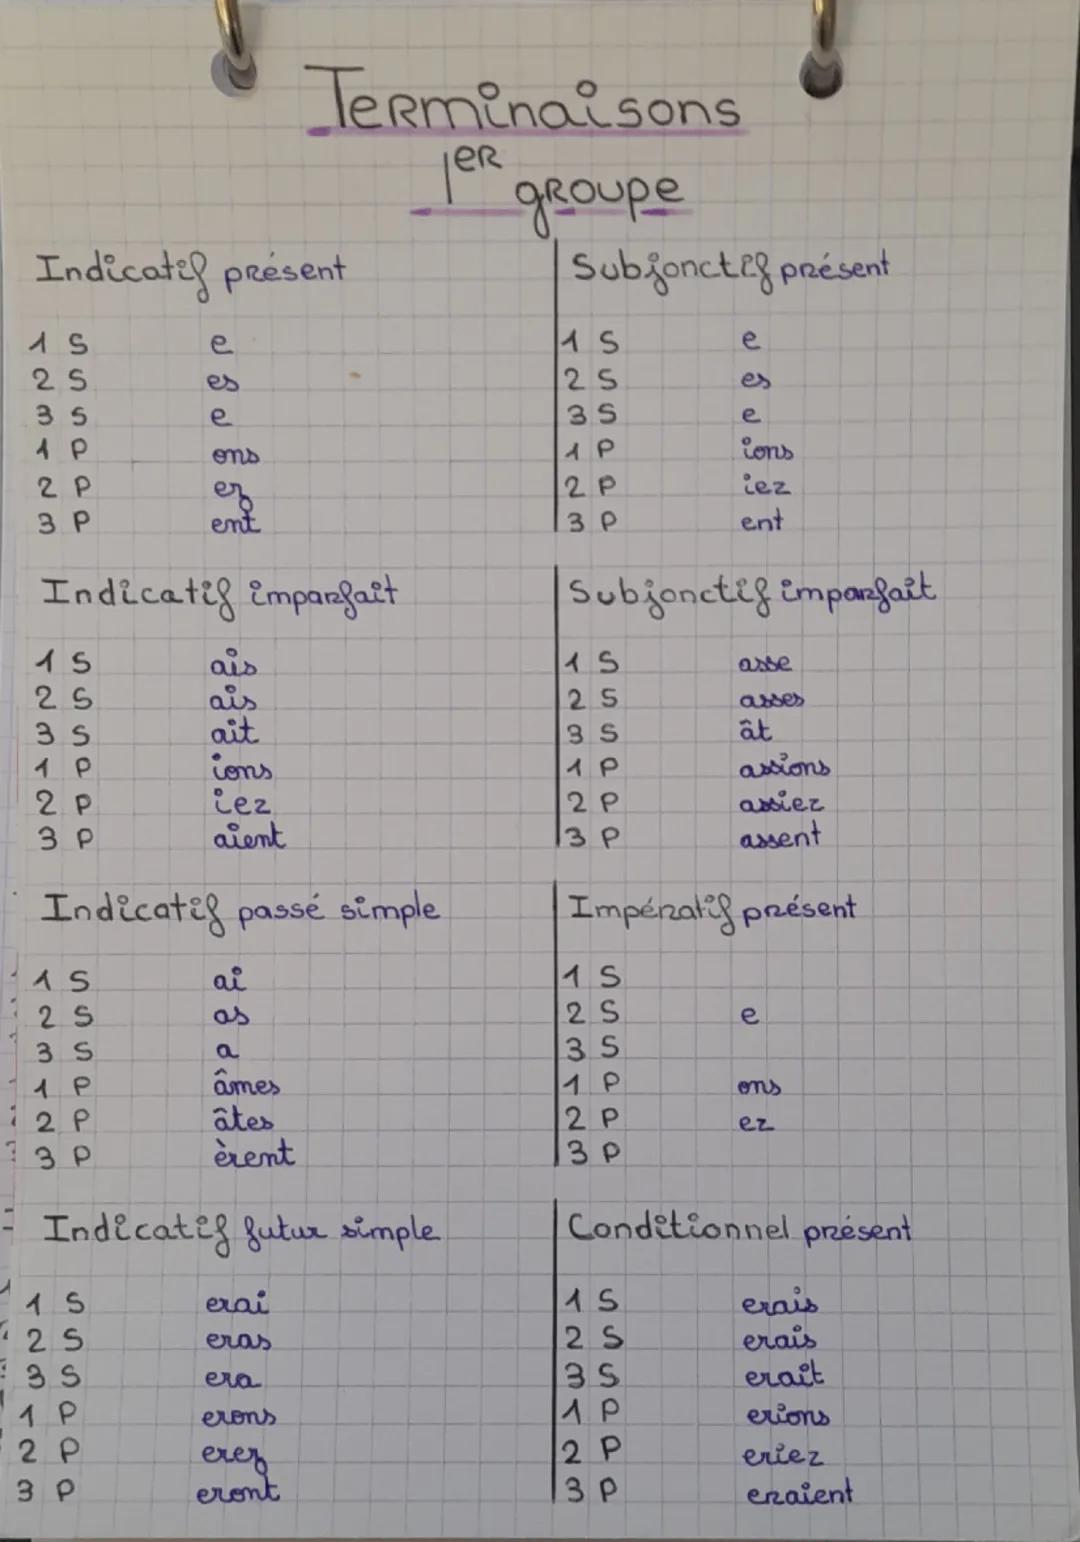 Terminaisons
1er groupe
Indicatif présent
1 S e
2 S es
3 S e
1 P ons
2 P ez
3 P ent
Subjonctif présent
1 S e
2 S es
3 S e
1 P ions
2 P iez
3 P ent
Indicatif imparfait
1 S ais
2 S ais
3 S ait
1 P ions
2 P iez
3 P aient
Subjonctif imparfait
1 S asse
2 S asses
3 S ât
1 P assions
2 P assiez
3 P assent
Indicatif passé simple
1 S ai
2 S as
3 S a
1 P âmes
2 P âtes
3 P èrent
Impératif présent
1 S
2 S e
3 S
1 P ons
2 P ez
3 P
Indicatif futur simple
1 S erai
2 S eras
3 S era
1 P erons
2 P erez
3 P eront
Conditionnel présent
1 S erais
2 S erais
3 S erait
1 P erions
2 P eriez
3 P eraient